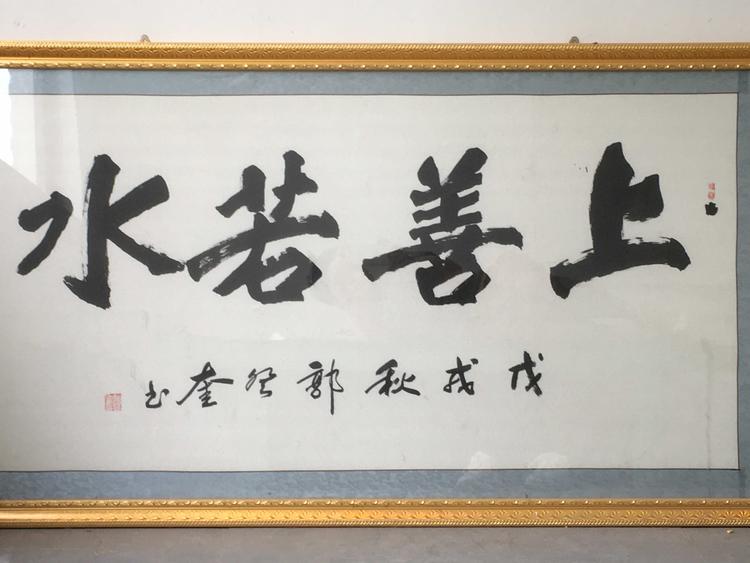 上善若水
戊戌秋郭癸奎书